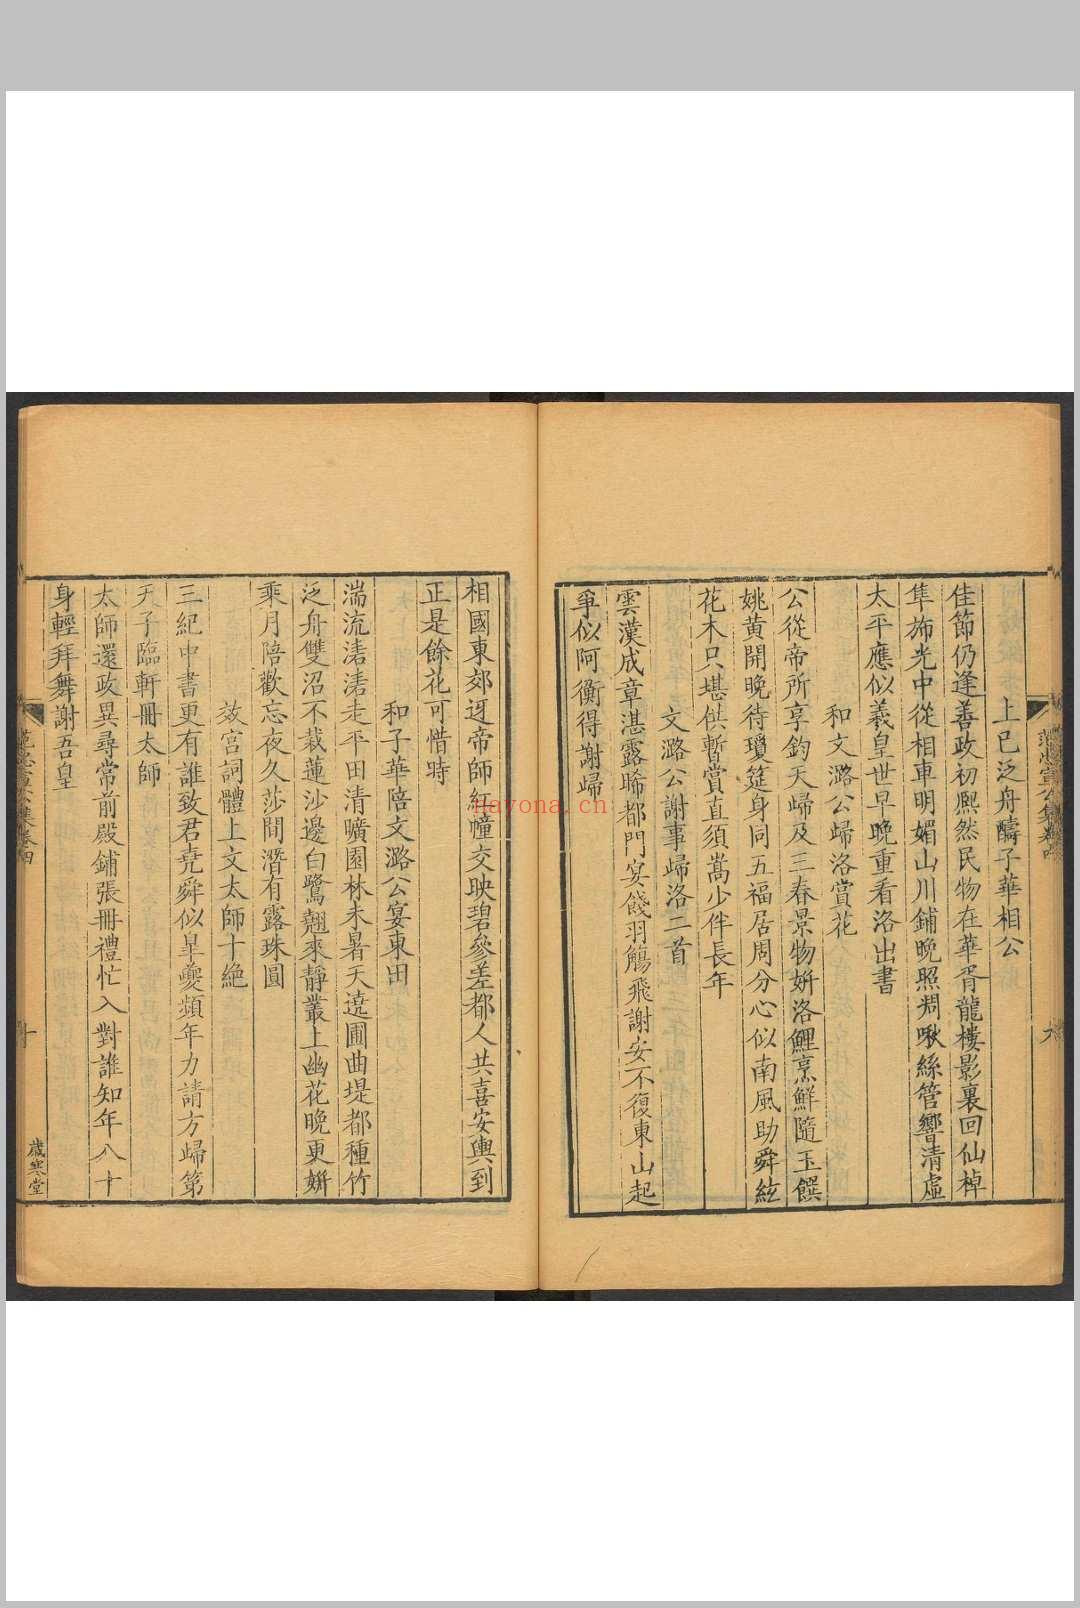 上巳泛舟醻子華相公
佳節仍逢善政初熈然民物在華胥龍樓影裏回仙棹
隼斾光中從相車明媚山川鋪晚照凋啾絲管響清虛
太平應似羲皇世早晚重看洛出書
和文潞公歸洛賞花
公從帝所享鈞天歸及三春景物妍洛鯉烹鮮隨玉饌
姚黄開晚待瓊筵身同五福居周分心似南風助舜絃
花木只堪供暫賞直須嵩少伴長年
文潞公謝事歸洛二首
雲漢成章湛露晞都門宴餞羽觴飛謝安不復東山起
爭似阿衡得謝歸
相國東郊迓帝師紅幢交映碧參差都人共喜安輿到
正是餘花可惜時
和子華陪文潞公宴東田
湍流濜濜走平田清曠園林未暑天遶圃曲堤都種竹
泛舟雙沼不栽蓮沙邊白鷺翹來靜叢上幽花晚更妍
乘月陪歡忘夜久莎間潛有露珠圓
效宮詞體上文太師十絶
三紀中書更有誰致君堯舜似皐夔頻年力請方歸第
天子臨軒冊太師
太師還政異尋常前殿鋪張冊禮忙入對誰知年八十
身輕拜舞謝吾皇
歲寒堂
nayona.cn